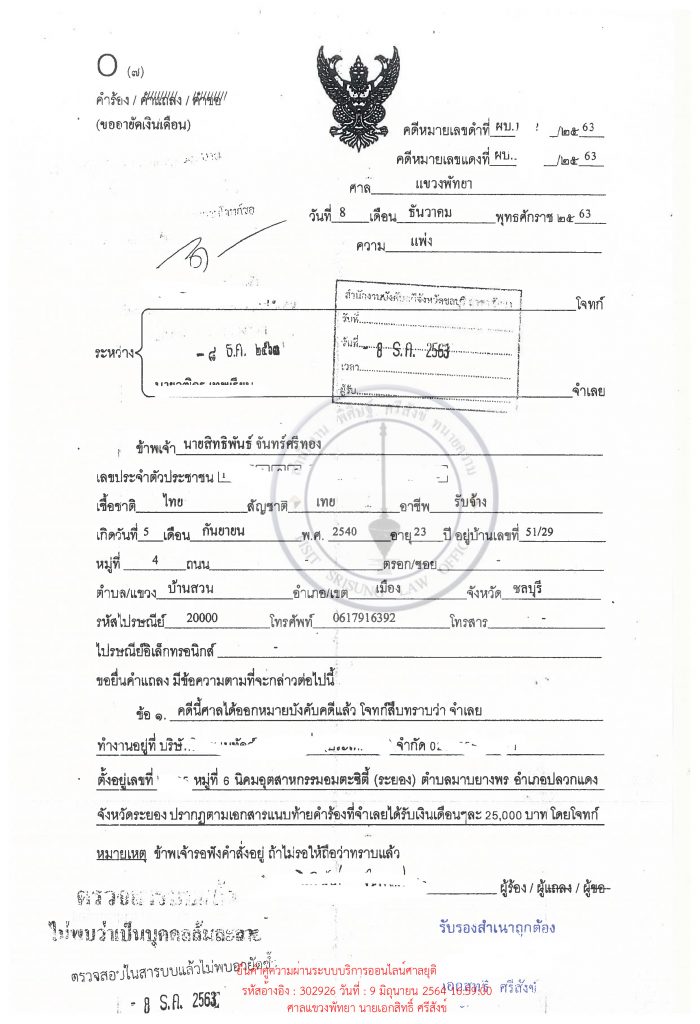 ๐ (๗)
คำร้อง / คำแถลง / คำขอ
(ขออายัดเงินเดือน)
คดีหมายเลขดำที่ ผบ.1 /๒๕ 63
คดีหมายเลขแดงที่ ผบ.. /๒๕ 63
ศาล แขวงพัทยา
วันที่ 8 เดือน ธันวาคม พุทธศักราช ๒๕ 63
ความ แพ่ง
โจทก์
สำนักงานบังคับคดีจังหวัดชลบุรี
รับที่
วันที่ - 8 ธ.ค. 2563
เวลา
ผู้รับ
ระหว่าง
- ๘ ธ.ค. ๒๕๖๓
จำเลย
ข้าพเจ้า นายสิทธิพันธ์ จันทร์ศรีทอง
เลขประจำตัวประชาชน
เชื้อชาติ ไทย สัญชาติ ไทย อาชีพ รับจ้าง
เกิดวันที่ 5 เดือน กันยายน พ.ศ. 2540 อายุ 23 ปี อยู่บ้านเลขที่ 51/29
หมู่ที่ 4 ถนน - ตรอก/ซอย -
ตำบล/แขวง บ้านสวน อำเภอ/เขต เมือง จังหวัด ชลบุรี
รหัสไปรษณีย์ 20000 โทรศัพท์ 0617916392 โทรสาร -
ไปรษณีย์อิเล็กทรอนิกส์ -
ขอยื่นคำแถลง มีข้อความตามที่จะกล่าวต่อไปนี้
ข้อ ๑. คดีนี้ศาลได้ออกหมายบังคับคดีแล้ว โจทก์สืบทราบว่า จำเลย
ทำงานอยู่ที่ บริษั จำกัด
ตั้งอยู่เลขที่ หมู่ที่ 6 นิคมอุตสาหกรรมอมตะซิตี้ (ระยอง) ตำบลมาบยางพร อำเภอปลวกแดง
จังหวัดระยอง ปรากฏตามเอกสารแนบท้ายคำร้องที่จำเลยได้รับเงินเดือนๆละ 25,000 บาท โดยโจทก์
หมายเหตุ ข้าพเจ้ารอฟังคำสั่งอยู่ ถ้าไม่รอให้ถือว่าทราบแล้ว
ผู้ร้อง / ผู้แถลง / ผู้ขอ
ไม่พบว่าเป็นบุคคลล้มละลาย
รับรองสำเนาถูกต้อง
ตรวจสอบในสารบบแล้วไม่พบอายัดซ้ำ
ยื่นคำคู่ความผ่านระบบบริการออนไลน์ศาลยุติ
รหัสอ้างอิง : 302926 วันที่ : 9 มิถุนายน 2564 16:59:00
เอกสิทธิ์ ศรีสังข์
- 8 ธ.ค. 2563
ศาลแขวงพัทยา นายเอกสิทธิ์ ศรีสังข์